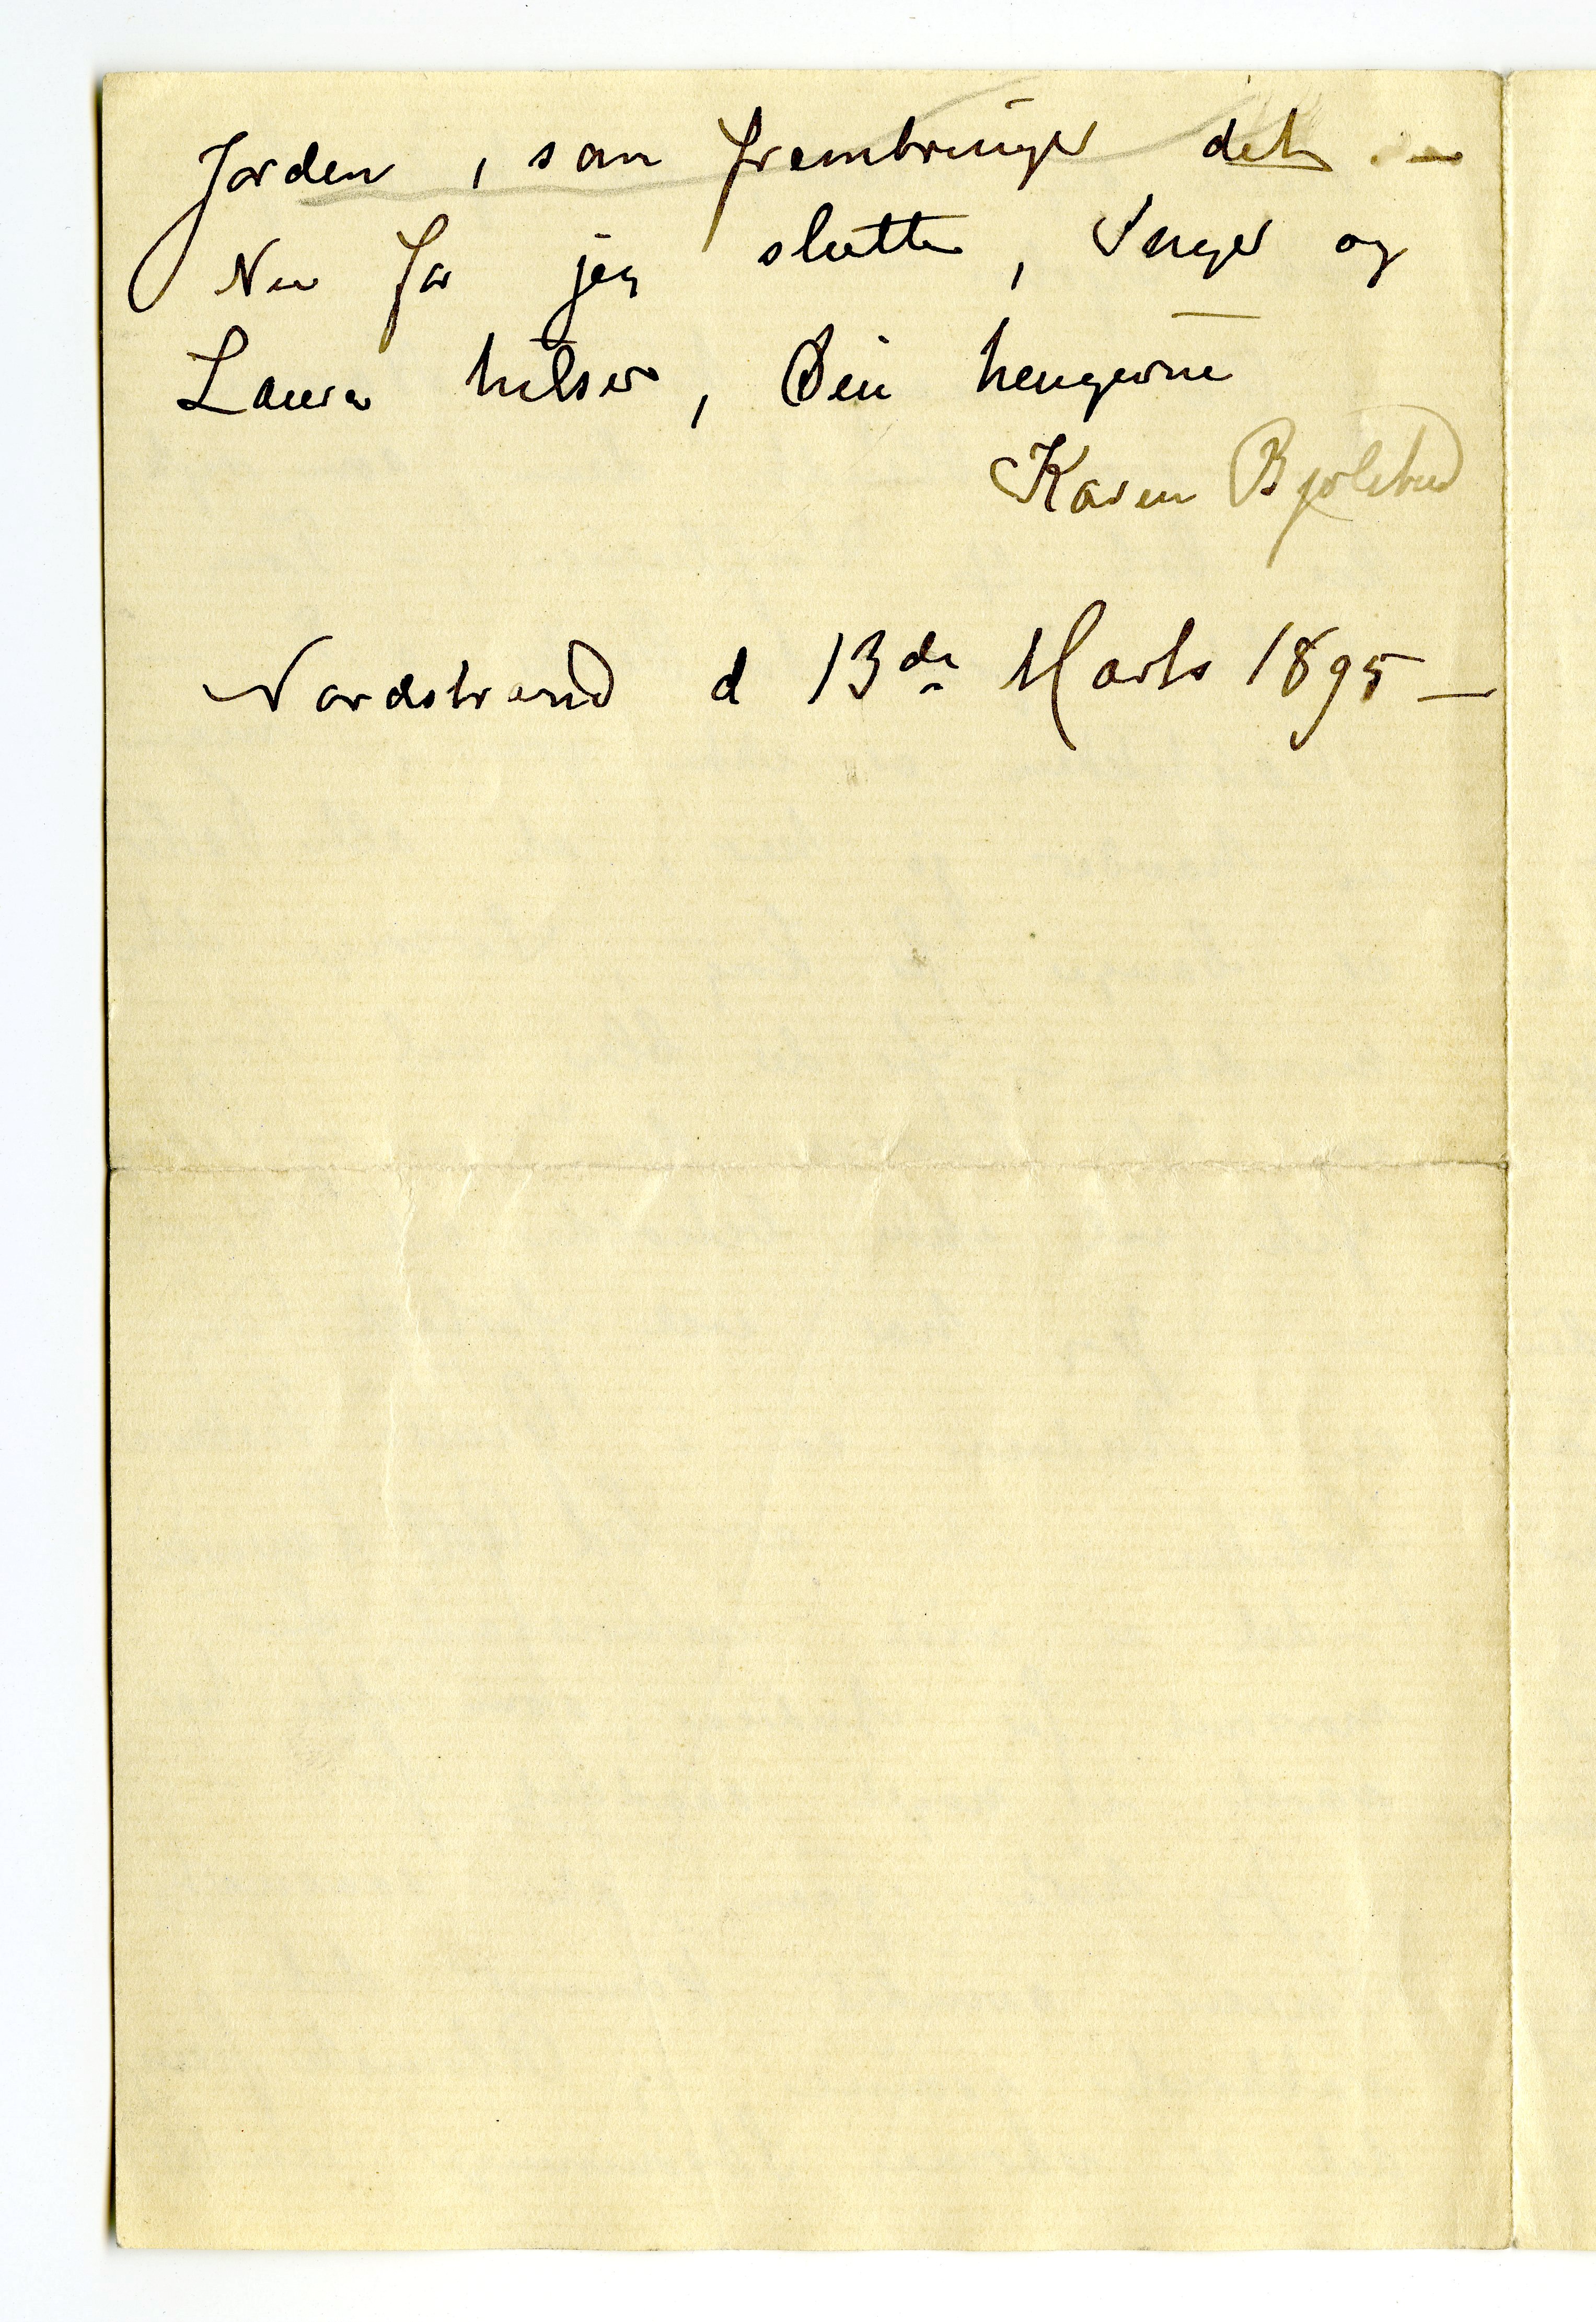 Jorden, som frembringer det. —
Nu får jeg slutte, Inger og
Laura hilser, Din hengivne
Karen Bjølstad
Nordstrand d 13de Marts 1895 —